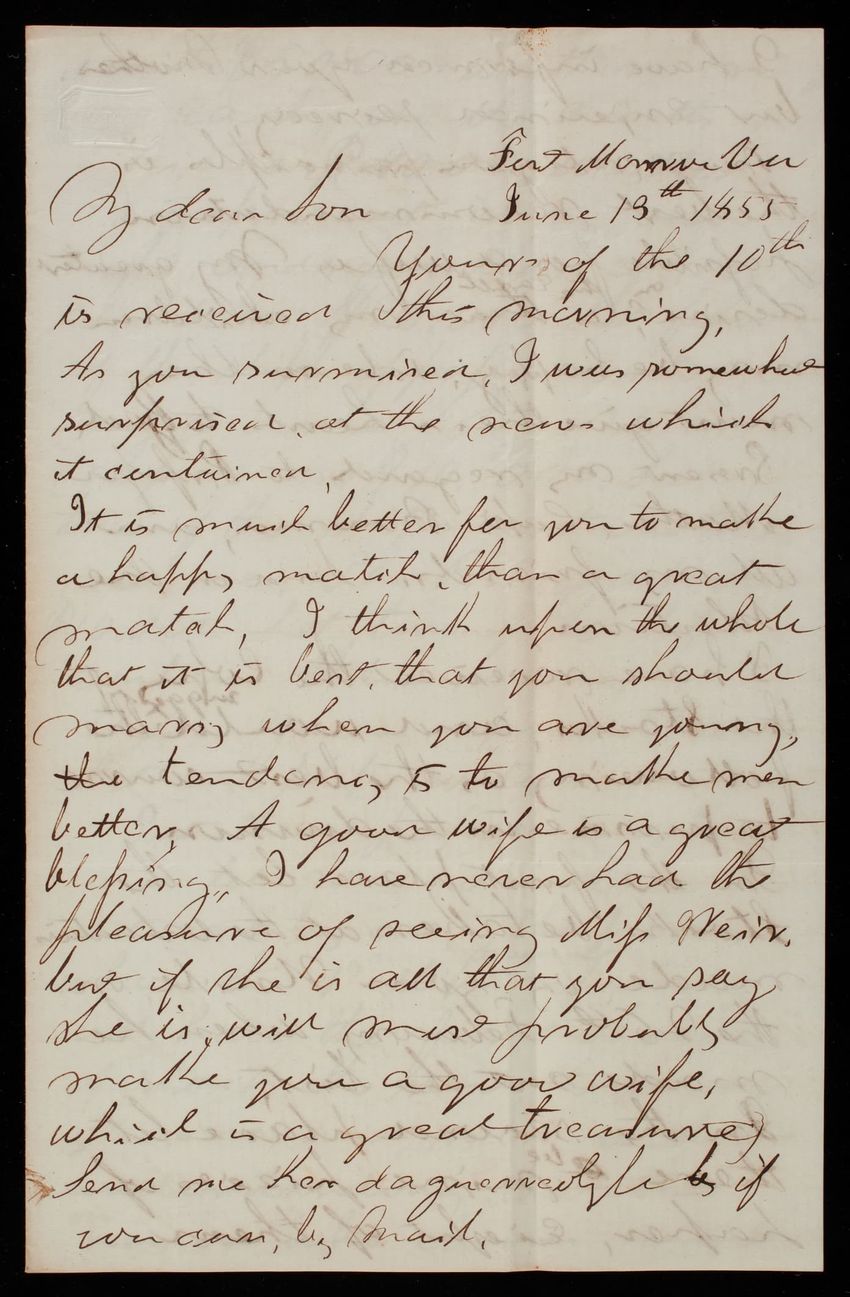 Fort Monroe Va
My dear Son June 13th 1855
Yours of the 10th
is received this morning,
As you surmised, I was somewhat
surprised, at the news which
it contained,
It is much better for you to make
a happy match, than a great
match, I think upon the whole
that it is best, that you should
marry when you are young,
the tendancy is to make men
better, A good wife is a great
blessing,, I have never had the
pleasure of seeing Miss Weir,
but if she is all that you say
she is, will most probably
make you a good wife,
which is a great treasure,
Send me her daguerreotype if
you can, by Mail,